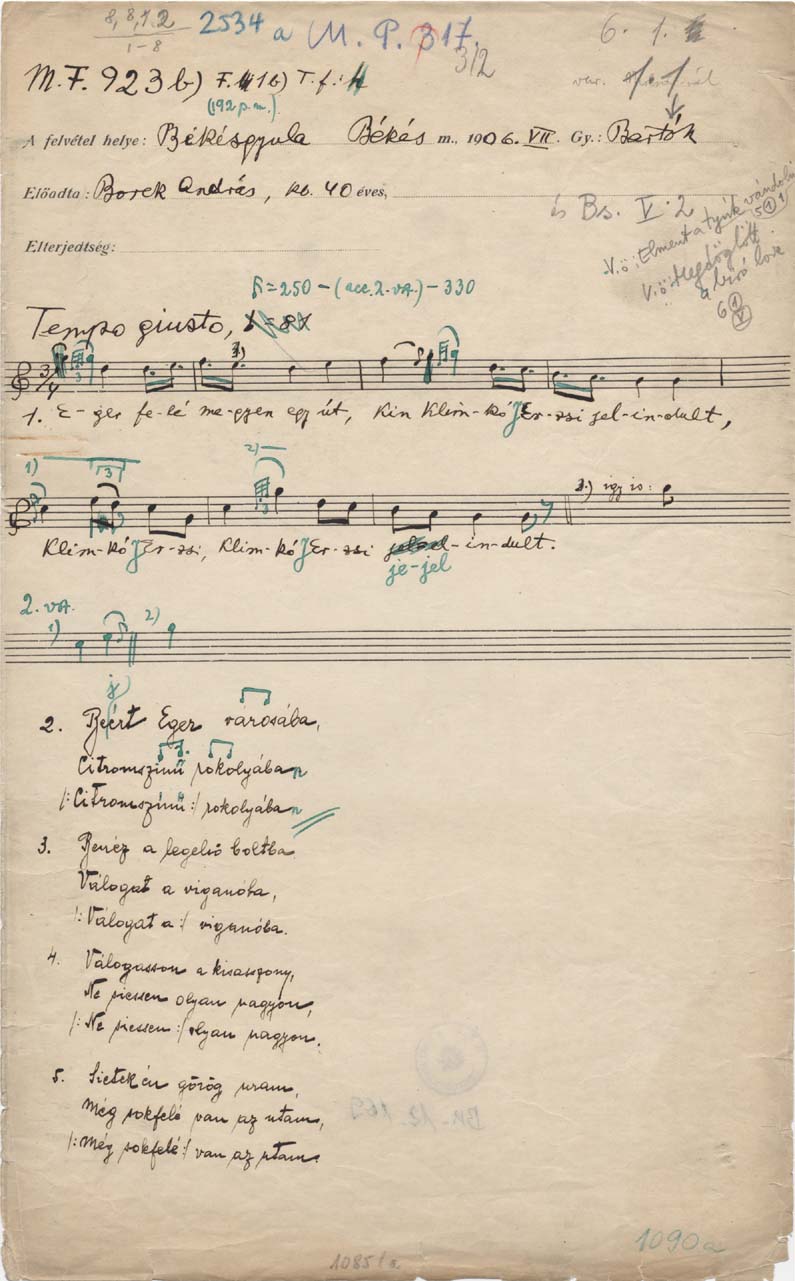 8, 8, 12
1-8
2534 a M. P. 317.
312
6. 1.
M.F. 923 b) F. 1b) T.f.: 4
var.
(192 p.m.)
A felvétel helye: Békésgyula Békés m., 1906. VII. Gy.: Bartók
Előadta: Borek András, kb. 40 éves,
és Bs. V. 2
V.ö: Elment a tyúk vándolni
5 1 1)
V.ö: Megdöglött
a biró lova
6 1 V
Elterjedtség:
=250-(acc. 2. va.)-330
Tempo giusto,
3)
3/4
3
1. E-ger fe-lé me-gyen egy út, Kin Klim-kó JEr-zsi jel-in-dult,
1) 3 2)
3
3.) igy is:
Klim-kó JEr-zsi, Klim-kó JEr-zsi -in-dult.
je-jel
2. va.
1) 2)
j)
2. Beért Eger városába,
Citromszinű rokolyában
/: Citromszinű :/ rokolyában
3. Benéz a legelső boltba
Válogat a viganóba,
/: Válogat a :/ viganóba.
4. Válogasson a kisasszony,
Ne siessen olyan nagyon,
/: Ne siessen :/ olyan nagyon.
5. Sietek én görög uram,
Még sokfelé van az utam,
/: Még sokfelé :/ van az utam.
1085/a
1090a